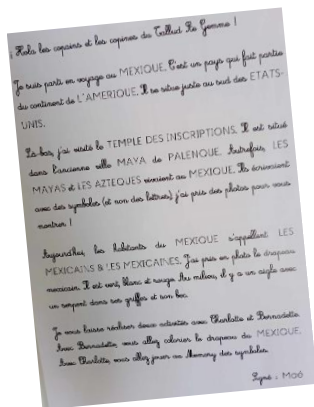 ¡ Hola les copains et les copines du Tallud Ste Gemme !
Je suis parti en voyage au MEXIQUE. C'est un pays qui fait partie
du continent de L'AMERIQUE. Il se situe juste au sud des ETATS-
UNIS.
Là-bas, j'ai visité le TEMPLE DES INSCRIPTIONS. Il est situé
dans l'ancienne ville MAYA de PALENQUE. Autrefois, LES
MAYAS et LES AZTEQUES vivaient au MEXIQUE. Ils écrivaient
avec des symboles (et non des lettres) j'ai pris des photos pour vous
montrer !
Aujourd'hui, les habitants du MEXIQUE s'appellent LES
MEXICAINS & LES MEXICAINES. J'ai pris en photo le drapeau
mexicain. Il est vert, blanc et rouge. Au milieu, il y a un aigle avec
un serpent dans ses griffes et son bec.
Je vous laisse réaliser deux activités avec Charlotte et Bernadette.
Avec Bernadette, vous allez colorier le drapeau du MEXIQUE.
Avec Charlotte, vous allez jouer au Memory des symboles.
Signé : MAÉ